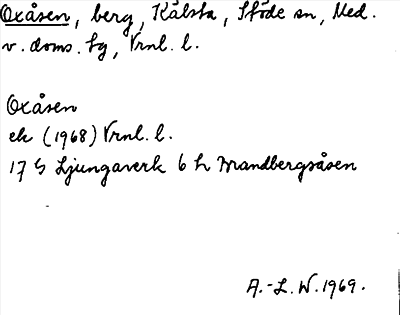 Oxåsen, berg, Kålsta, Stöde sn, Med.
v. doms. sg, Vrnl. l.
Oxåsen
ek (1968) Vrnl. l.
17 G Ljungaverk 6 h Brandbergsåsen
A.-L. W. 1969.